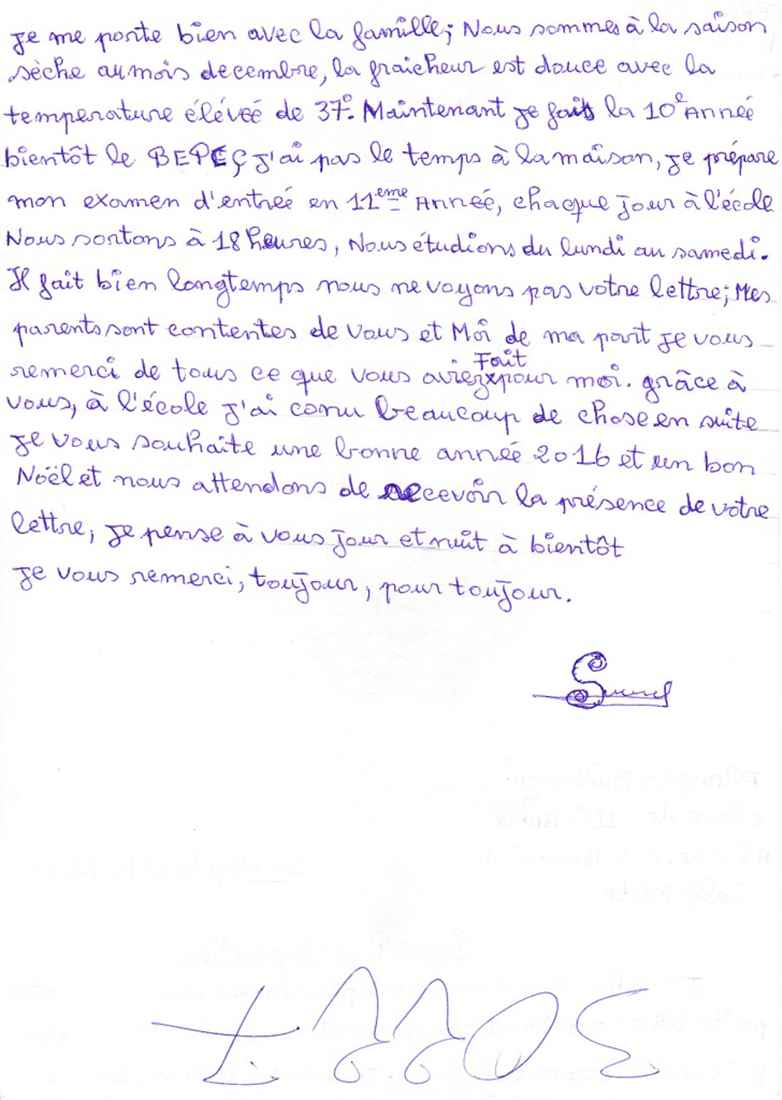 Je me porte bien avec la famille; Nous sommes à la saison
sèche au mois decembre, la fraîcheur est douce avec la
temperature élévéé de 37°. Maintenant je fais la 10e Année
bientôt le BEPC, j'ai pas le temps à la maison, je prépare
mon examen d'entréé en 11eme Année, chaque jour à l'école
Nous sortons à 18 heures, Nous étudions du lundi au samedi.
Il fait bien longtemps nous ne voyons pas votre lettre; Mes
parents sont contentes de vous et Moi de ma part je vous
remerci de tous ce que vous aviez Fait pour moi. grâce à
vous, à l'école j'ai conu beaucoup de chose en suite
je vous souhaite une bonne année 2016 et un bon
Noël et nous attendons de recevoir la présence de votre
lettre, je pense à vous jour et nuit à bientôt
je vous remerci, toujour, pour toujour.